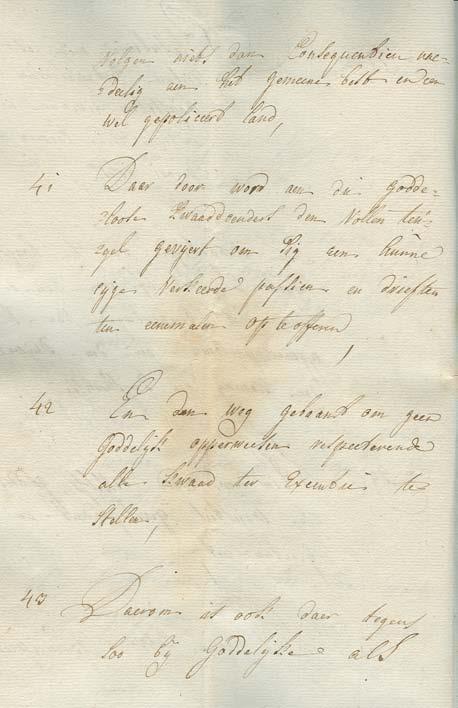 volgen niets dan Consequentien nae-
deelig aen het gemeene best en den
wel gepoliceert land,
41 Daar door word aen die godde-
loose quaaddoenders den vollen teu-
gel geviert om sig aen hunne
eyge verkeerde passien en driften
ten eenemalen op te offeren,
42 En den weg gebaant om geen
goddelijk opperweesen respecteerende
alle kwaad ter executie te
stellen,
43 Daerom is ook daer tegen
soo bij Goddelijke als